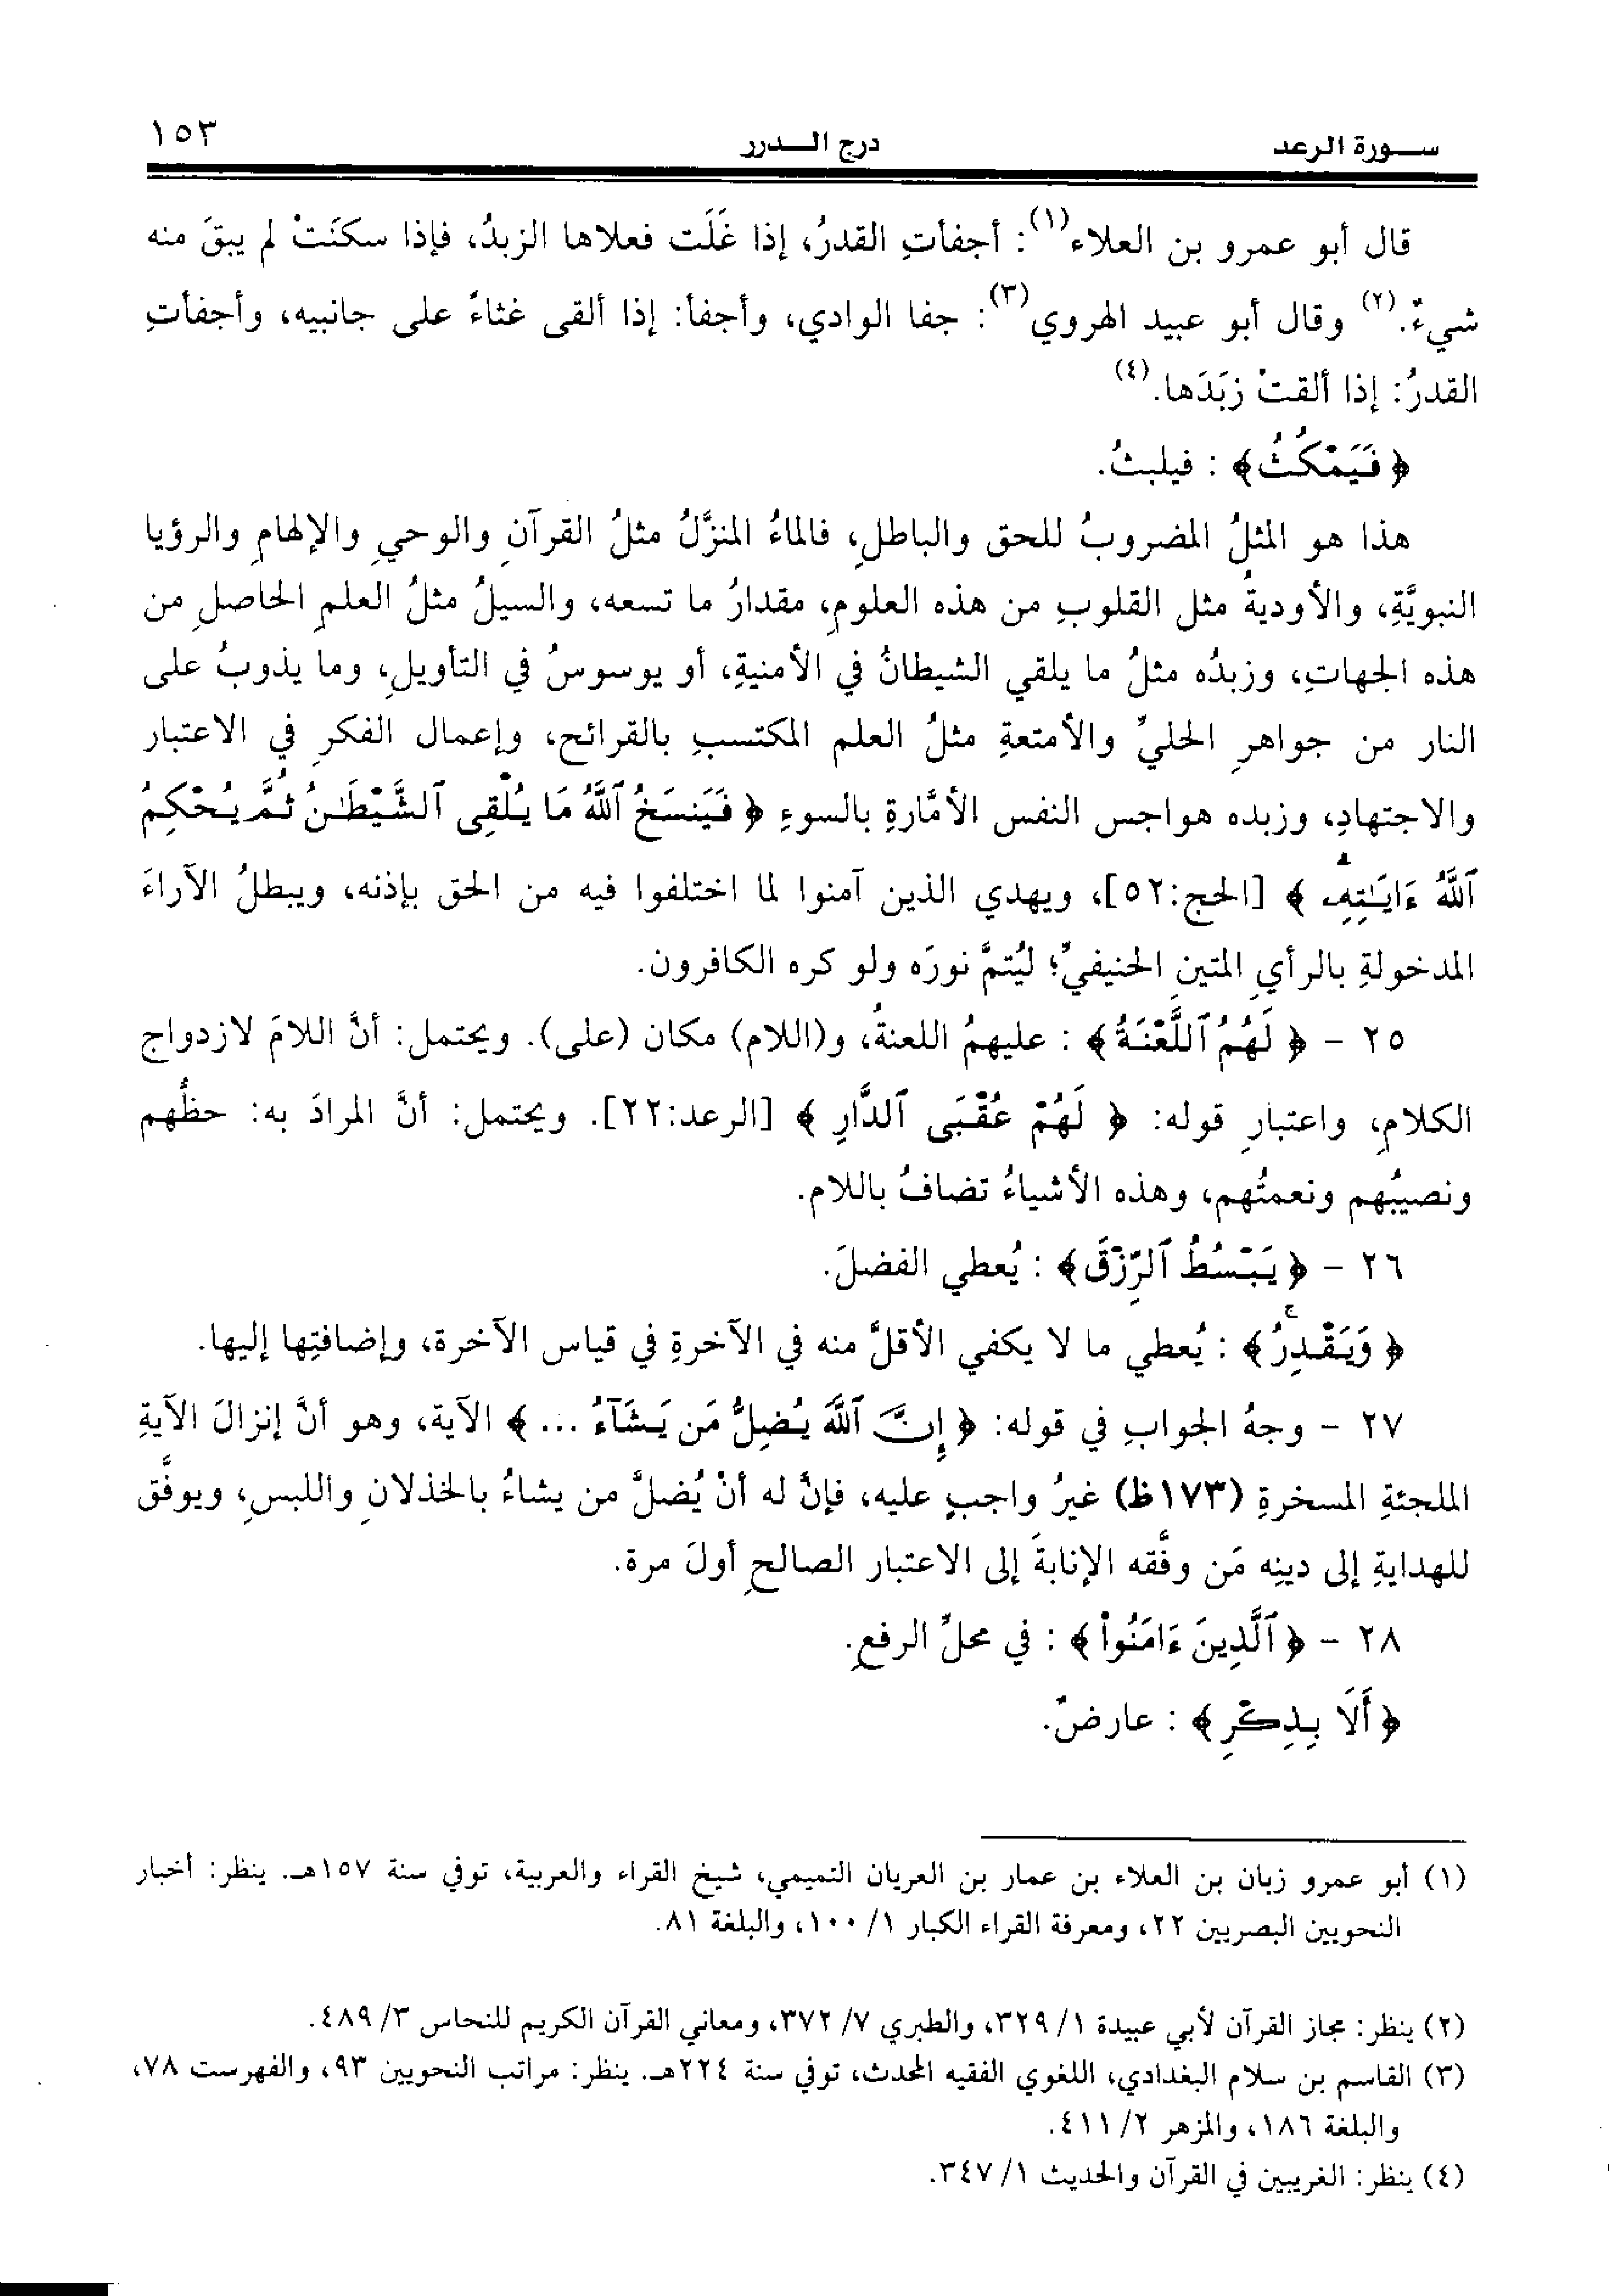 سورة الرعد درج الدرر ١٥٣
قال أبو عمرو بن العلاء(١): أجفأتِ القدرُ، إذا غَلَت فعلاها الزبدُ، فإذا سكنَتْ لم يبقَ منه
شيءٌ.(٢) وقال أبو عبيد الهروي(٣): جفا الوادي، وأجفأ: إذا ألقى غثاءً على جانبيه، وأجفأتِ
القدرُ: إذا ألقتْ زبَدَها.(٤)
﴿فَيَمْكُثُ﴾ : فيلبثُ.
هذا هو المثلُ المضروبُ للحق والباطلِ، فالماءُ المنزَّلُ مثلُ القرآنِ والوحيِ والإلهامِ والرؤيا
النبويَّةِ، والأوديةُ مثل القلوبِ من هذه العلومِ، مقدارُ ما تسعه، والسيلُ مثلُ العلمِ الحاصلِ من
هذه الجهاتِ، وزبدُه مثلُ ما يلقي الشيطانُ في الأمنيةِ، أو يوسوسُ في التأويلِ، وما يذوبُ على
النار من جواهرِ الحليِّ والأمتعةِ مثلُ العلم المكتسبِ بالقرائح، وإعمال الفكرِ في الاعتبار
والاجتهادِ، وزبده هواجس النفس الأمَّارةِ بالسوءِ ﴿فَيَنسَخُ ٱللَّهُ مَا يُلْقِى ٱلشَّيْطَـٰنُ ثُمَّ يُحْكِمُ
ٱللَّهُ ءَايَـٰتِهِۦ﴾ [الحج:٥٢]، ويهدي الذين آمنوا لما اختلفوا فيه من الحق بإذنه، ويبطلُ الآراءَ
المدخولةِ بالرأيِ المتينِ الحنيفيِّ؛ ليُتمَّ نورَه ولو كره الكافرون.
٢٥ - ﴿لَهُمُ ٱللَّعْنَةُ﴾ : عليهمُ اللعنةُ، و(اللام) مكان (على). ويحتمل: أنَّ اللامَ لازدواج
الكلامِ، واعتبارِ قوله: ﴿لَهُمْ عُقْبَى ٱلدَّارِ﴾ [الرعد:٢٢]. ويحتمل: أنَّ المرادَ به: حظُّهم
ونصيبُهم ونعمتُهم، وهذه الأشياءُ تضافُ باللام.
٢٦ - ﴿يَبْسُطُ ٱلرِّزْقَ﴾ : يُعطي الفضلَ.
﴿وَيَقْدِرُ ۚ﴾ : يُعطي ما لا يكفي الأقلَّ منه في الآخرةِ في قياس الآخرة، وإضافتِها إليها.
٢٧ - وجهُ الجوابِ في قوله: ﴿إِنَّ ٱللَّهَ يُضِلُّ مَن يَشَآءُ ...﴾ الآية، وهو أنَّ إنزالَ الآيةِ
الملجئةِ المسخرةِ (١٧٣ظ) غيرُ واجبٍ عليه، فإنَّ له أنْ يُضلَّ من يشاءُ بالخذلانِ واللبسِ، ويوفَّق
للهدايةِ إلى دينِه مَن وفَّقه الإنابةَ إلى الاعتبار الصالحِ أولَ مرة.
٢٨ - ﴿ٱلَّذِينَ ءَامَنُوا۟﴾ : في محلِّ الرفعِ.
﴿أَلَا بِذِكْرِ﴾ : عارضٌ.
(١) أبو عمرو زبان بن العلاء بن عمار بن العريان التميمي، شيخ القراء والعربية، توفي سنة ١٥٧هـ. ينظر: أخبار
النحويين البصريين ٢٢، ومعرفة القراء الكبار ١/ ١٠٠، والبلغة ٨١.
(٢) ينظر: مجاز القرآن لأبي عبيدة ١/ ٣٢٩، والطبري ٧/ ٣٧٢، ومعاني القرآن الكريم للنحاس ٣/ ٤٨٩.
(٣) القاسم بن سلام البغدادي، اللغوي الفقيه المحدث، توفي سنة ٢٢٤هـ. ينظر: مراتب النحويين ٩٣، والفهرست ٧٨،
والبلغة ١٨٦، والمزهر ٢/ ٤١١.
(٤) ينظر: الغريبين في القرآن والحديث ١/ ٣٤٧.